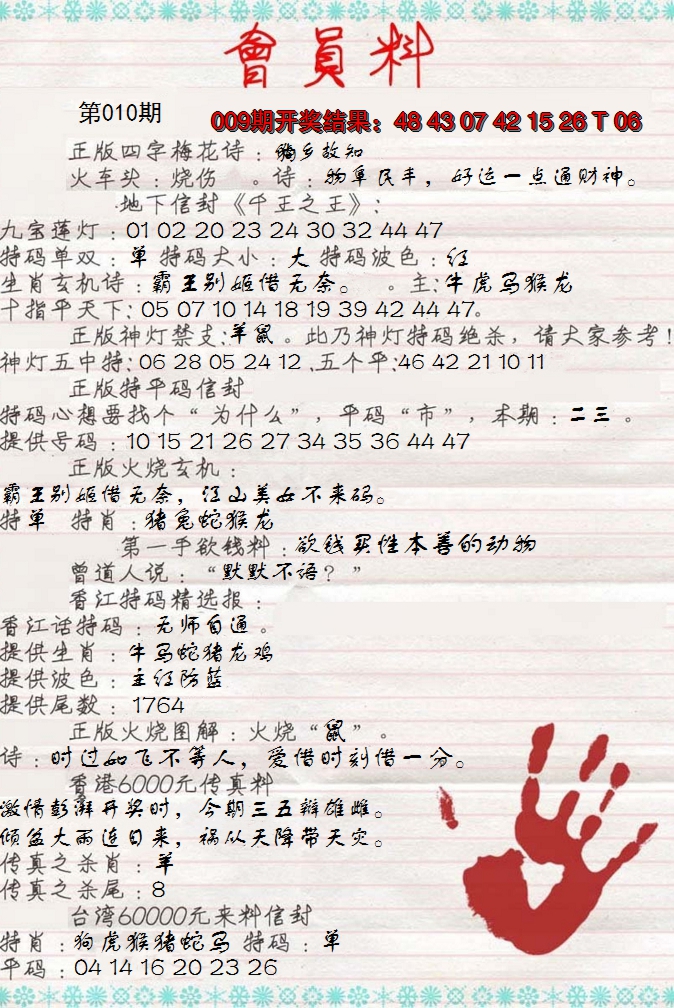 會員料
第010期
009期开奖结果：48 43 07 42 15 26 T 06
正版四字梅花诗：鄉乡故知
火车头：烧伤 。诗：物阜民丰，好运一点通财神。
地下信封《千王之王》：
九宝莲灯：01 02 20 23 24 30 32 44 47
特码单双：单 特码大小：大 特码波色：红
生肖玄机诗：霸王别姬借无奈。 。主:牛虎马猴龙
十指平天下: 05 07 10 14 18 19 39 42 44 47。
正版神灯禁支:羊鼠。此乃神灯特码绝杀，请大家参考!
神灯五中特: 06 28 05 24 12 .五个平:46 42 21 10 11
正版特平码信封
特码心想要找个“为什么”，平码“市”，本期：二三 。
提供号码：10 15 21 26 27 34 35 36 44 47
正版火烧玄机：
霸王别姬借无奈，江山美女不来码。
特单 特肖：猪兔蛇猴龙
第一手欲钱料：欲钱买性本善的动物
曾道人说：“默默不语？”
香江特码精选报：
香江话特码：无师自通。
提供生肖：牛马蛇猪龙鸡
提供波色：主红防蓝
提供尾数：1764
正版火烧图解：火烧“鼠”。
诗：时过如飞不等人，爱惜时刻借一分。
香港6000元传真料
激情彭湃开奖时，今期三五辩雄雌。
倾盆大雨连日来，祸从天降带天灾。
传真之杀肖：羊
传真之杀尾：8
台湾60000元来料信封
特肖：狗虎猴猪蛇马 特码：单
平码：04 14 16 20 23 26